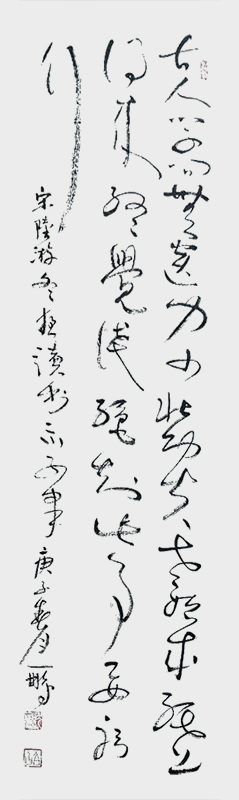 古人学问無遗力少壮功夫老始成纸上
得来终覺浅绝知此事要躬
行
宋陸游冬夜讀书示子聿 庚子春月鹏